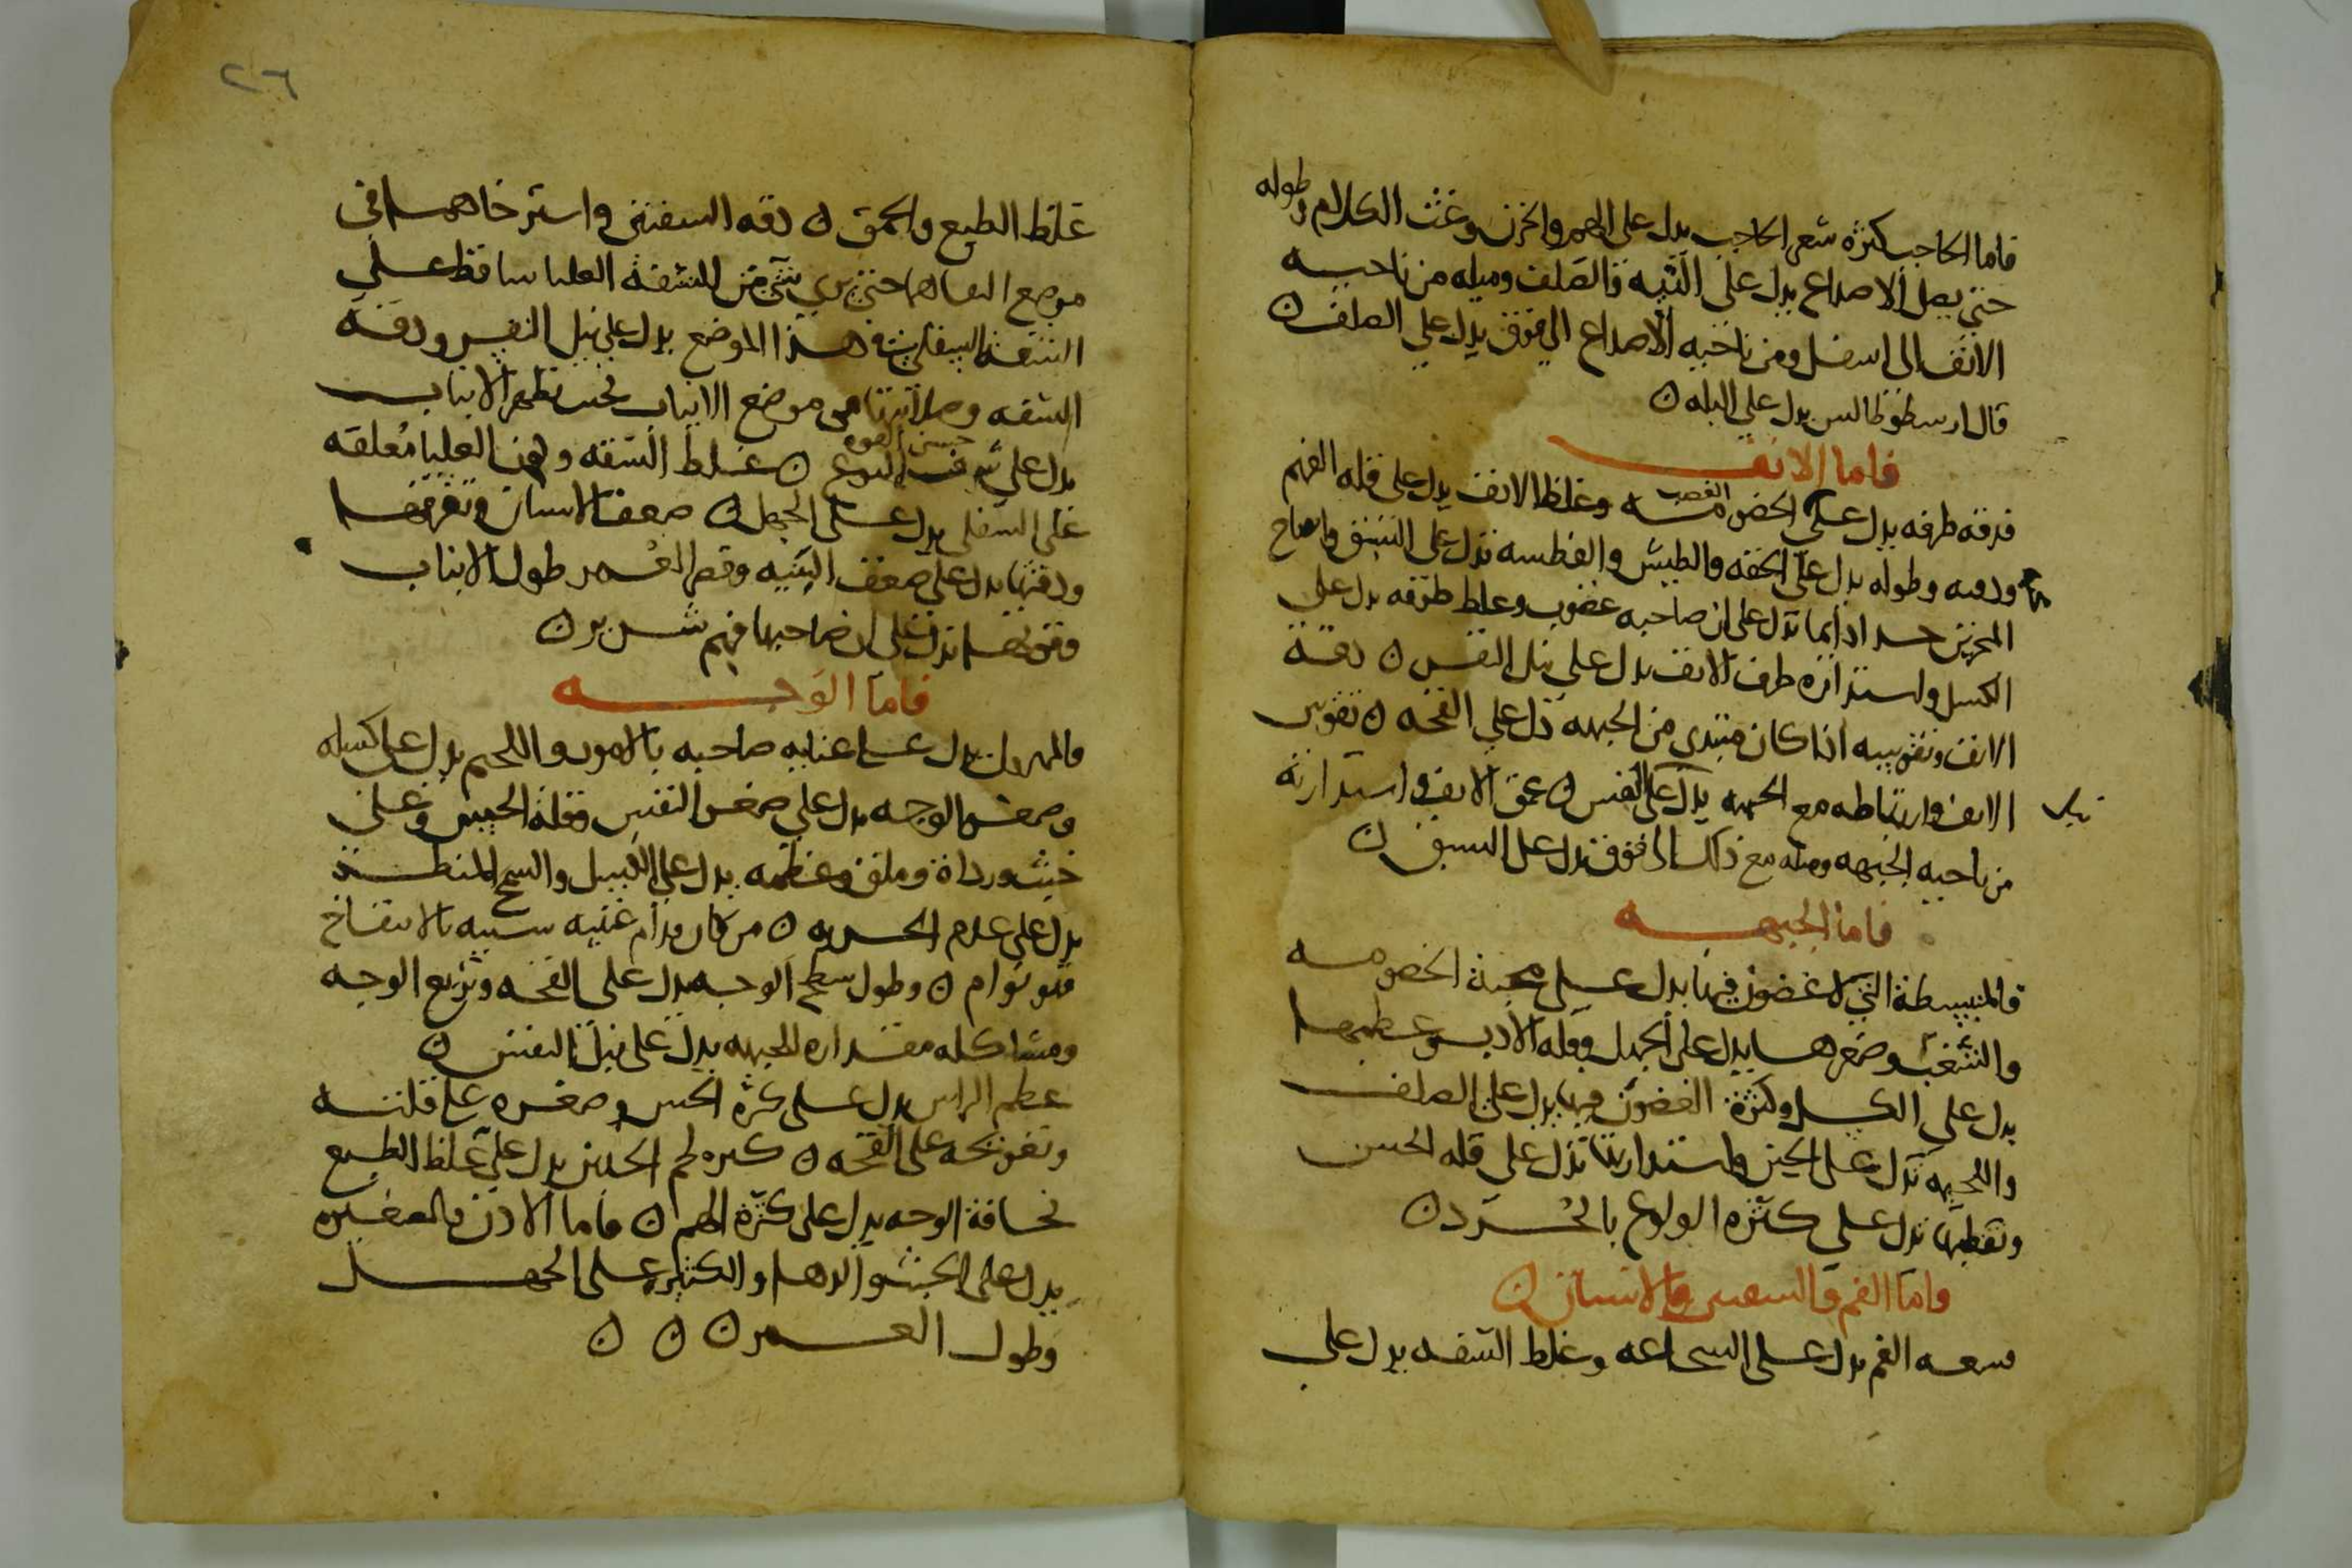 فاما الحاجب كثرة شعر الحاجب يدل على الهم والحزن وغث الكلام وطوله
حتى يصل الاصداغ يدل على التيه والصلف وميله من ناحيه
الانف الى اسفل ومن ناحيه الاصداغ الى فوق يدل على الصلف ن
قال ارسطوطالس يدل على البله ن
فاما الانف
فدقه طرفه يدل على الخصومه وغلظ الانف يدل على قله الفهم
الغضب
ودقته وطوله يدل على الخفه والطيش والفطسه تدل على الشبق وانفتاح
المنخرين جدا دايما تدل على ان صاحبه غضوب وغلظ طرفه يدل على
الكسل واستدارة طرف الانف يدل على نبل النفس ن دقة
الانف وتقويسه اذا كان مبتدى من الجبهه دل على القحه ن تقويس
الانف وارتباطه مع الجبهه يدل على النفس ن عمق الانف واستدارته
نبل
من ناحيه الجبهه وميله مع ذلك الى فوق يدل على الشبق ن
فاما الجبهه
فالمنبسطة التي لا غضون فيها يدل على محبة الخصومه
والشغب وصغرها يدل على الجهل وقله الادب وعظمها
يدل على الكسل وكثرة الغضون فيها يدل على الصلف
واللحيمه تدل على واستدارتها تدل على قله الحس
وتقطيبها تدل على كثره الولوع بالحرد ن
واما الفم والشفتين والاسنان ن
فسعه الفم يدل على الشجاعه وغلظ الشفه يدل على
٢٦
غلظ الطبع والحمق ن دقه الشفتين واسترخاهما في
موضع التقاهما حتى يرى شي من الشفة العليا ساقط على
الشفة السفلى في هذا الموضع يدل على نبل النفس ودقة
الشفه وصلابتها من موضع الانياب بحيث تظهر الانياب
حسن القوه
يدل على ن غلظ الشفه وكون العليا معلقه
على السفلى يدل على الجهل ن ضعف الاسنان وتفرقها
ودقتها يدل على ضعف البنيه وقصر العمر طول الانياب
وقوتها تدل على ان صاحبها فهم شرير ن
فاما الوجه
والمهزول يدل على عنايه صاحبه بالامور واللحيم يدل على كسله
وصغر الوجه يدل على صغر النفس وقلة الحس وعلى
خبث ورداة وملق وعظمه يدل على الكسل والسمج المنظر
يدل على عدم الحريه ن من كان قدام عينيه شبيه بالانتفاخ
فهو نوام ن وطول سطح الوجه يدل على القحه وتربع الوجه
ومشاكله مقداره للجبهه يدل على نبل النفس ن
عظم الراس يدل على كثرة الحس وصغره على قلته
وتفرطحه على القحه ن كثره لحم الخدين يدل على غلظ الطبع
نحافة الوجه يدل على كثرة الهم ن فاما الاذن فالصغيره
يدل على الخبث والدها والكبيره على الجهل
وطول العمر ن ن ن